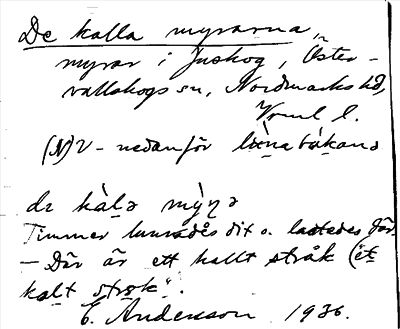 De kalla myrarna,
myrar i Juskog, Öster-
vallskogs sn, Nordmarks hd,
Vrml l.
(N)V - nedanför
de kàlə mỳṇə
Timmer kunde dit o. lastades där.
- Där är ett kallt stråk (et
kalt strɵk".
E. Andersson 1936.